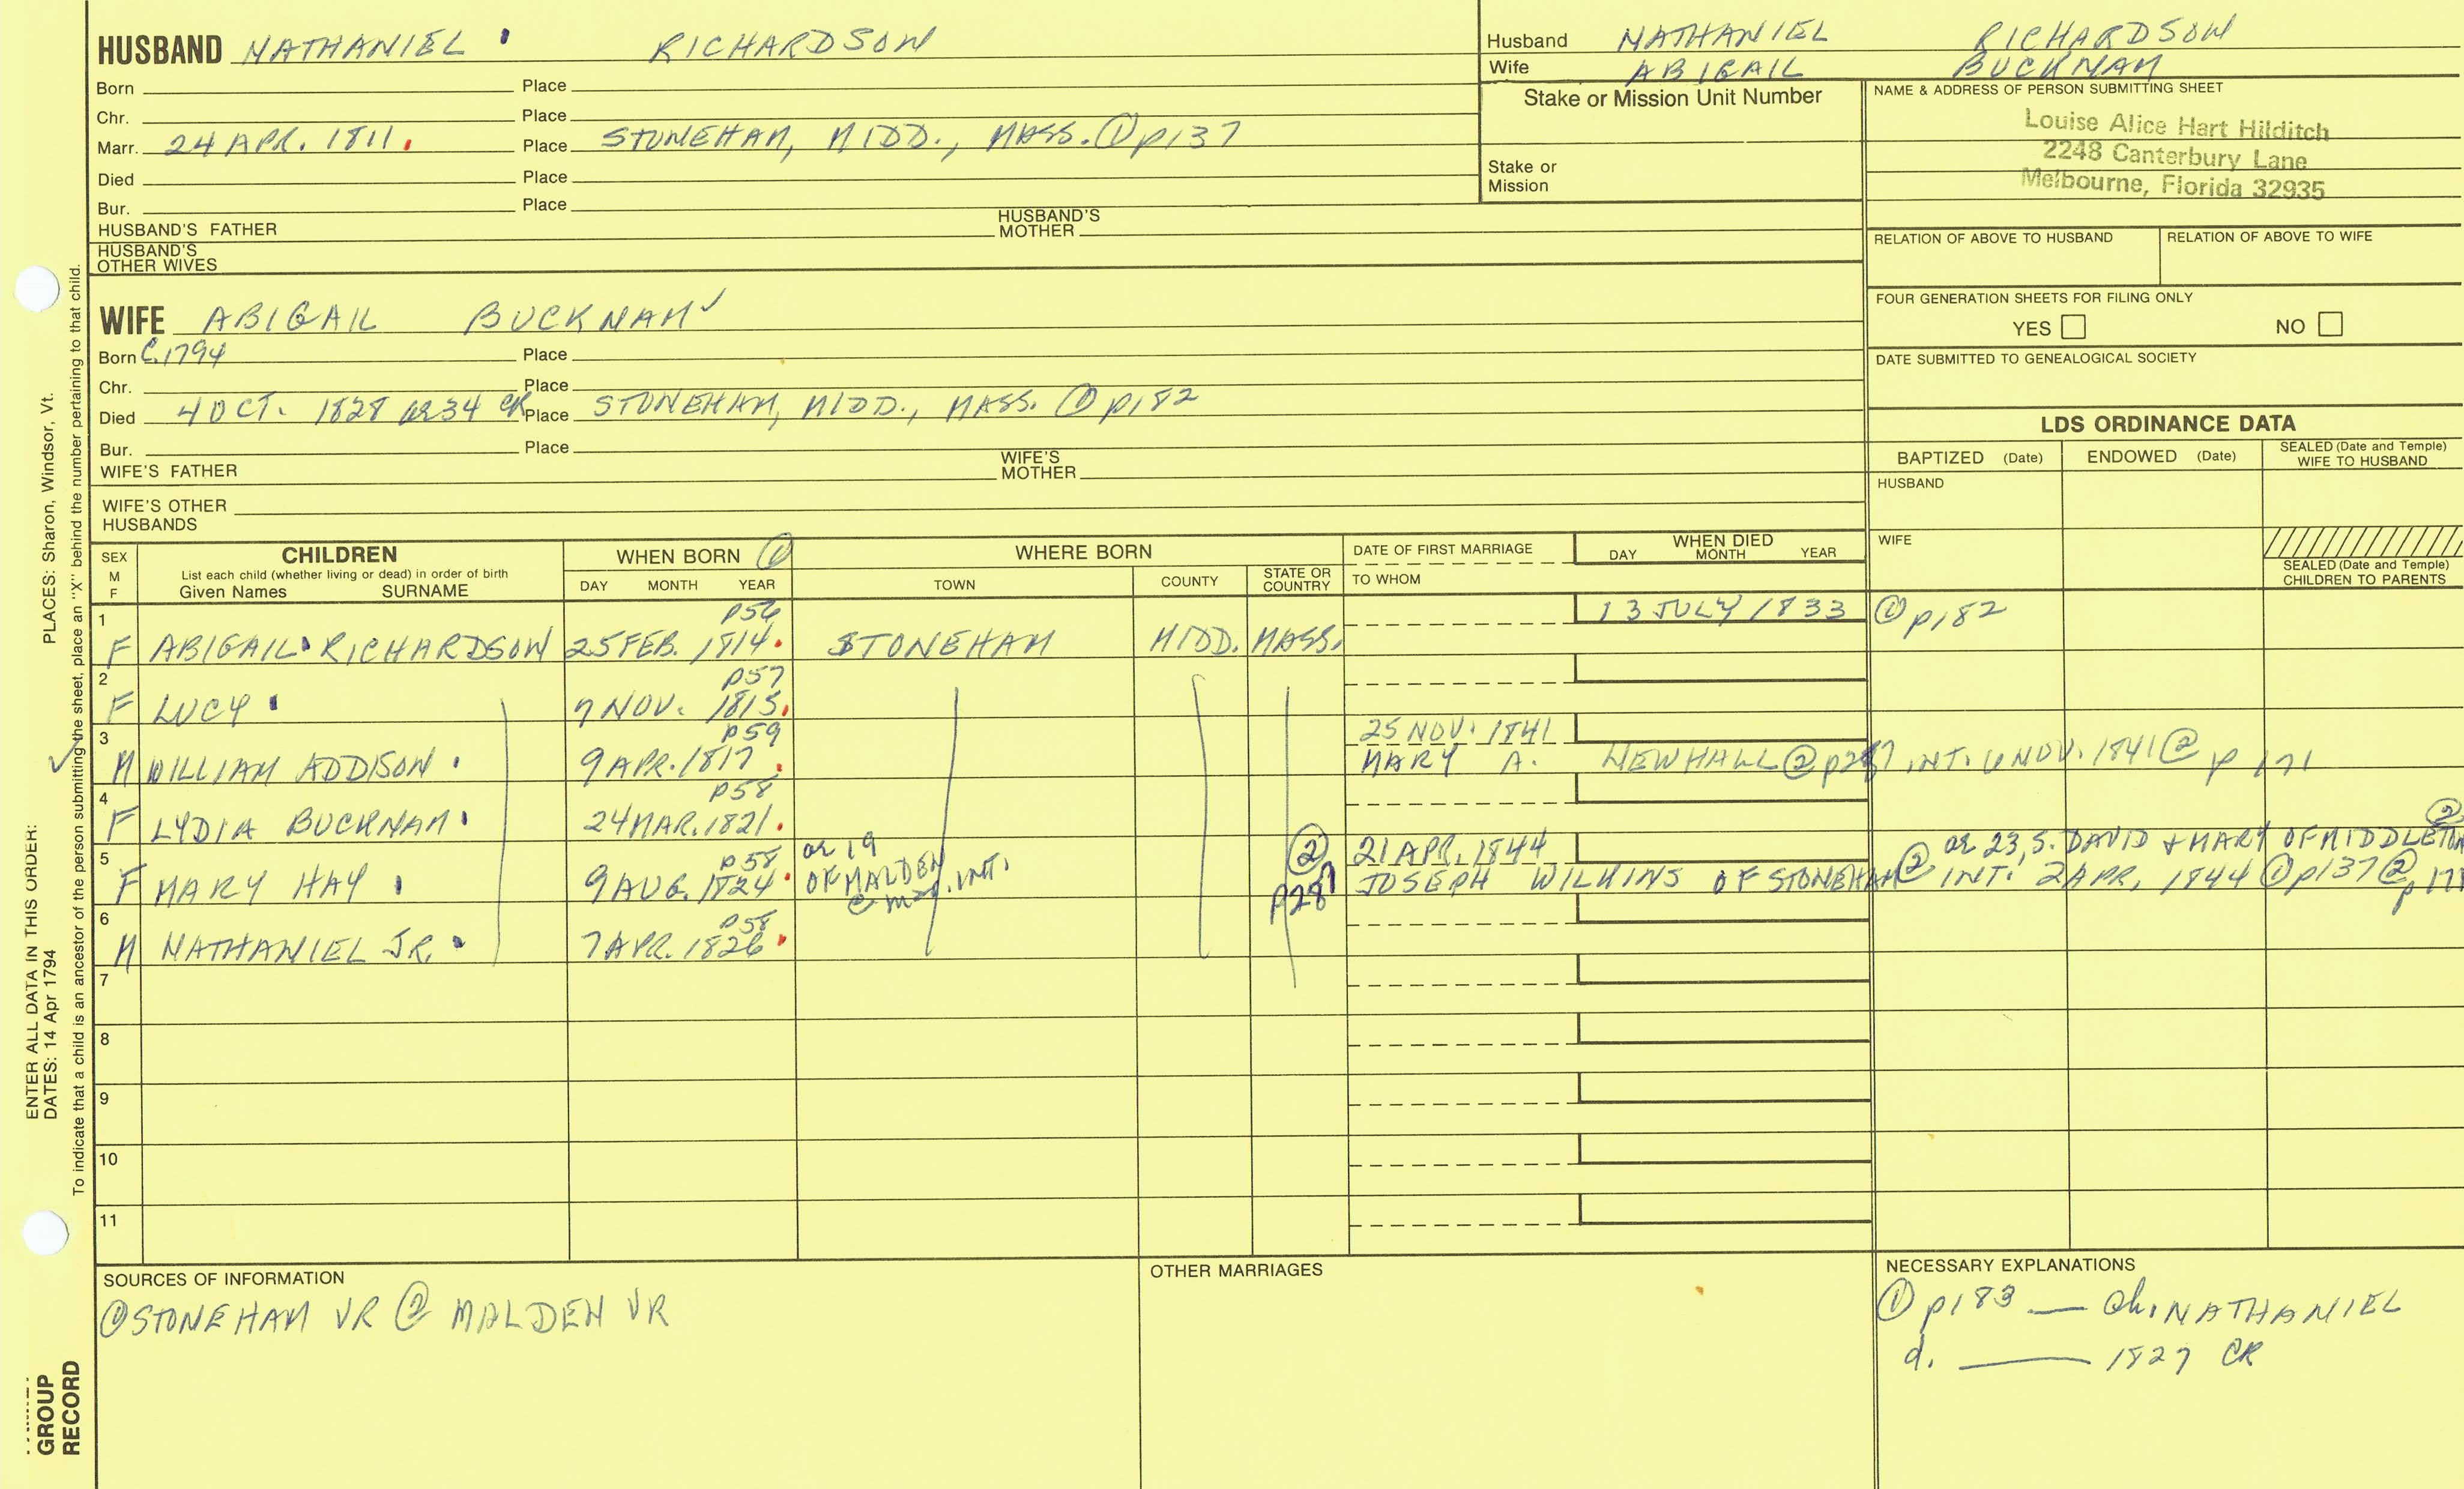 HUSBAND NATHANIEL RICHARDSON
Born Place
Chr. Place
Marr. 24 APR. 1811. Place STONEHAM, MIDD., MASS. ① p137
Died Place
Bur. Place
HUSBAND'S FATHER HUSBAND'S MOTHER
HUSBAND'S OTHER WIVES
Husband NATHANIEL RICHARDSON
Wife ABIGAIL BUCKNAM
Stake or Mission Unit Number
Stake or Mission
NAME & ADDRESS OF PERSON SUBMITTING SHEET
Louise Alice Hart Hilditch
2248 Canterbury Lane
Melbourne, Florida 32935
RELATION OF ABOVE TO HUSBAND RELATION OF ABOVE TO WIFE
FOUR GENERATION SHEETS FOR FILING ONLY
YES NO
DATE SUBMITTED TO GENEALOGICAL SOCIETY
WIFE ABIGAIL BUCKNAM ✓
Born C. 1794 Place
Chr. Place
Died 4 OCT. 1828 ae 34 CR Place STONEHAM, MIDD., MASS. ① p182
Bur. Place
WIFE'S FATHER WIFE'S MOTHER
WIFE'S OTHER HUSBANDS
LDS ORDINANCE DATA
BAPTIZED (Date) ENDOWED (Date) SEALED (Date and Temple) WIFE TO HUSBAND
HUSBAND
WIFE
SEALED (Date and Temple) CHILDREN TO PARENTS
SEX M F
CHILDREN
List each child (whether living or dead) in order of birth
Given Names SURNAME
WHEN BORN ①
DAY MONTH YEAR
WHERE BORN
TOWN COUNTY STATE OR COUNTRY
DATE OF FIRST MARRIAGE
TO WHOM
WHEN DIED
DAY MONTH YEAR
1 p56 13 JULY 1833 ① p182
F ABIGAIL RICHARDSON 25 FEB. 1814. STONEHAM MIDD. MASS.
2 p57
F LUCY 7 NOV. 1815.
3 p59 25 NOV. 1841
✓ M WILLIAM ADDISON 9 APR. 1817. MARY A. NEWHALL ② INT. 6 NOV. 1841 ② p 171
4 p58
F LYDIA BUCKNAM 24 MAR. 1821.
5 p58 or 19 ② 21 APR. 1844 or 23, S. DAVID + MARY OF MIDDLETON ②
F MARY HAY 9 AUG. 1824. OF MALDEN @ mar. INT. p287 JOSEPH WILKINS OF STONEHAM ② INT. 2 APR. 1844 ① p137 ② p171
6 p58
M NATHANIEL JR. 7 APR. 1826
7
8
9
10
11
SOURCES OF INFORMATION
① STONEHAM VR ② MALDEN VR
OTHER MARRIAGES
NECESSARY EXPLANATIONS
① p183 — ch. NATHANIEL
d. —— 1827 CR
ENTER ALL DATA IN THIS ORDER:
DATES: 14 Apr 1794
PLACES: Sharon, Windsor, Vt.
To indicate that a child is an ancestor of the person submitting the sheet, place an "X" behind the number pertaining to that child.
GROUP
RECORD